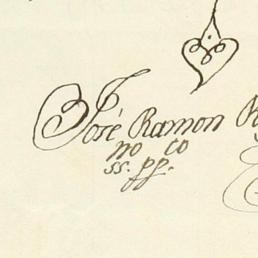 José Ramon
no co
ss. pp.